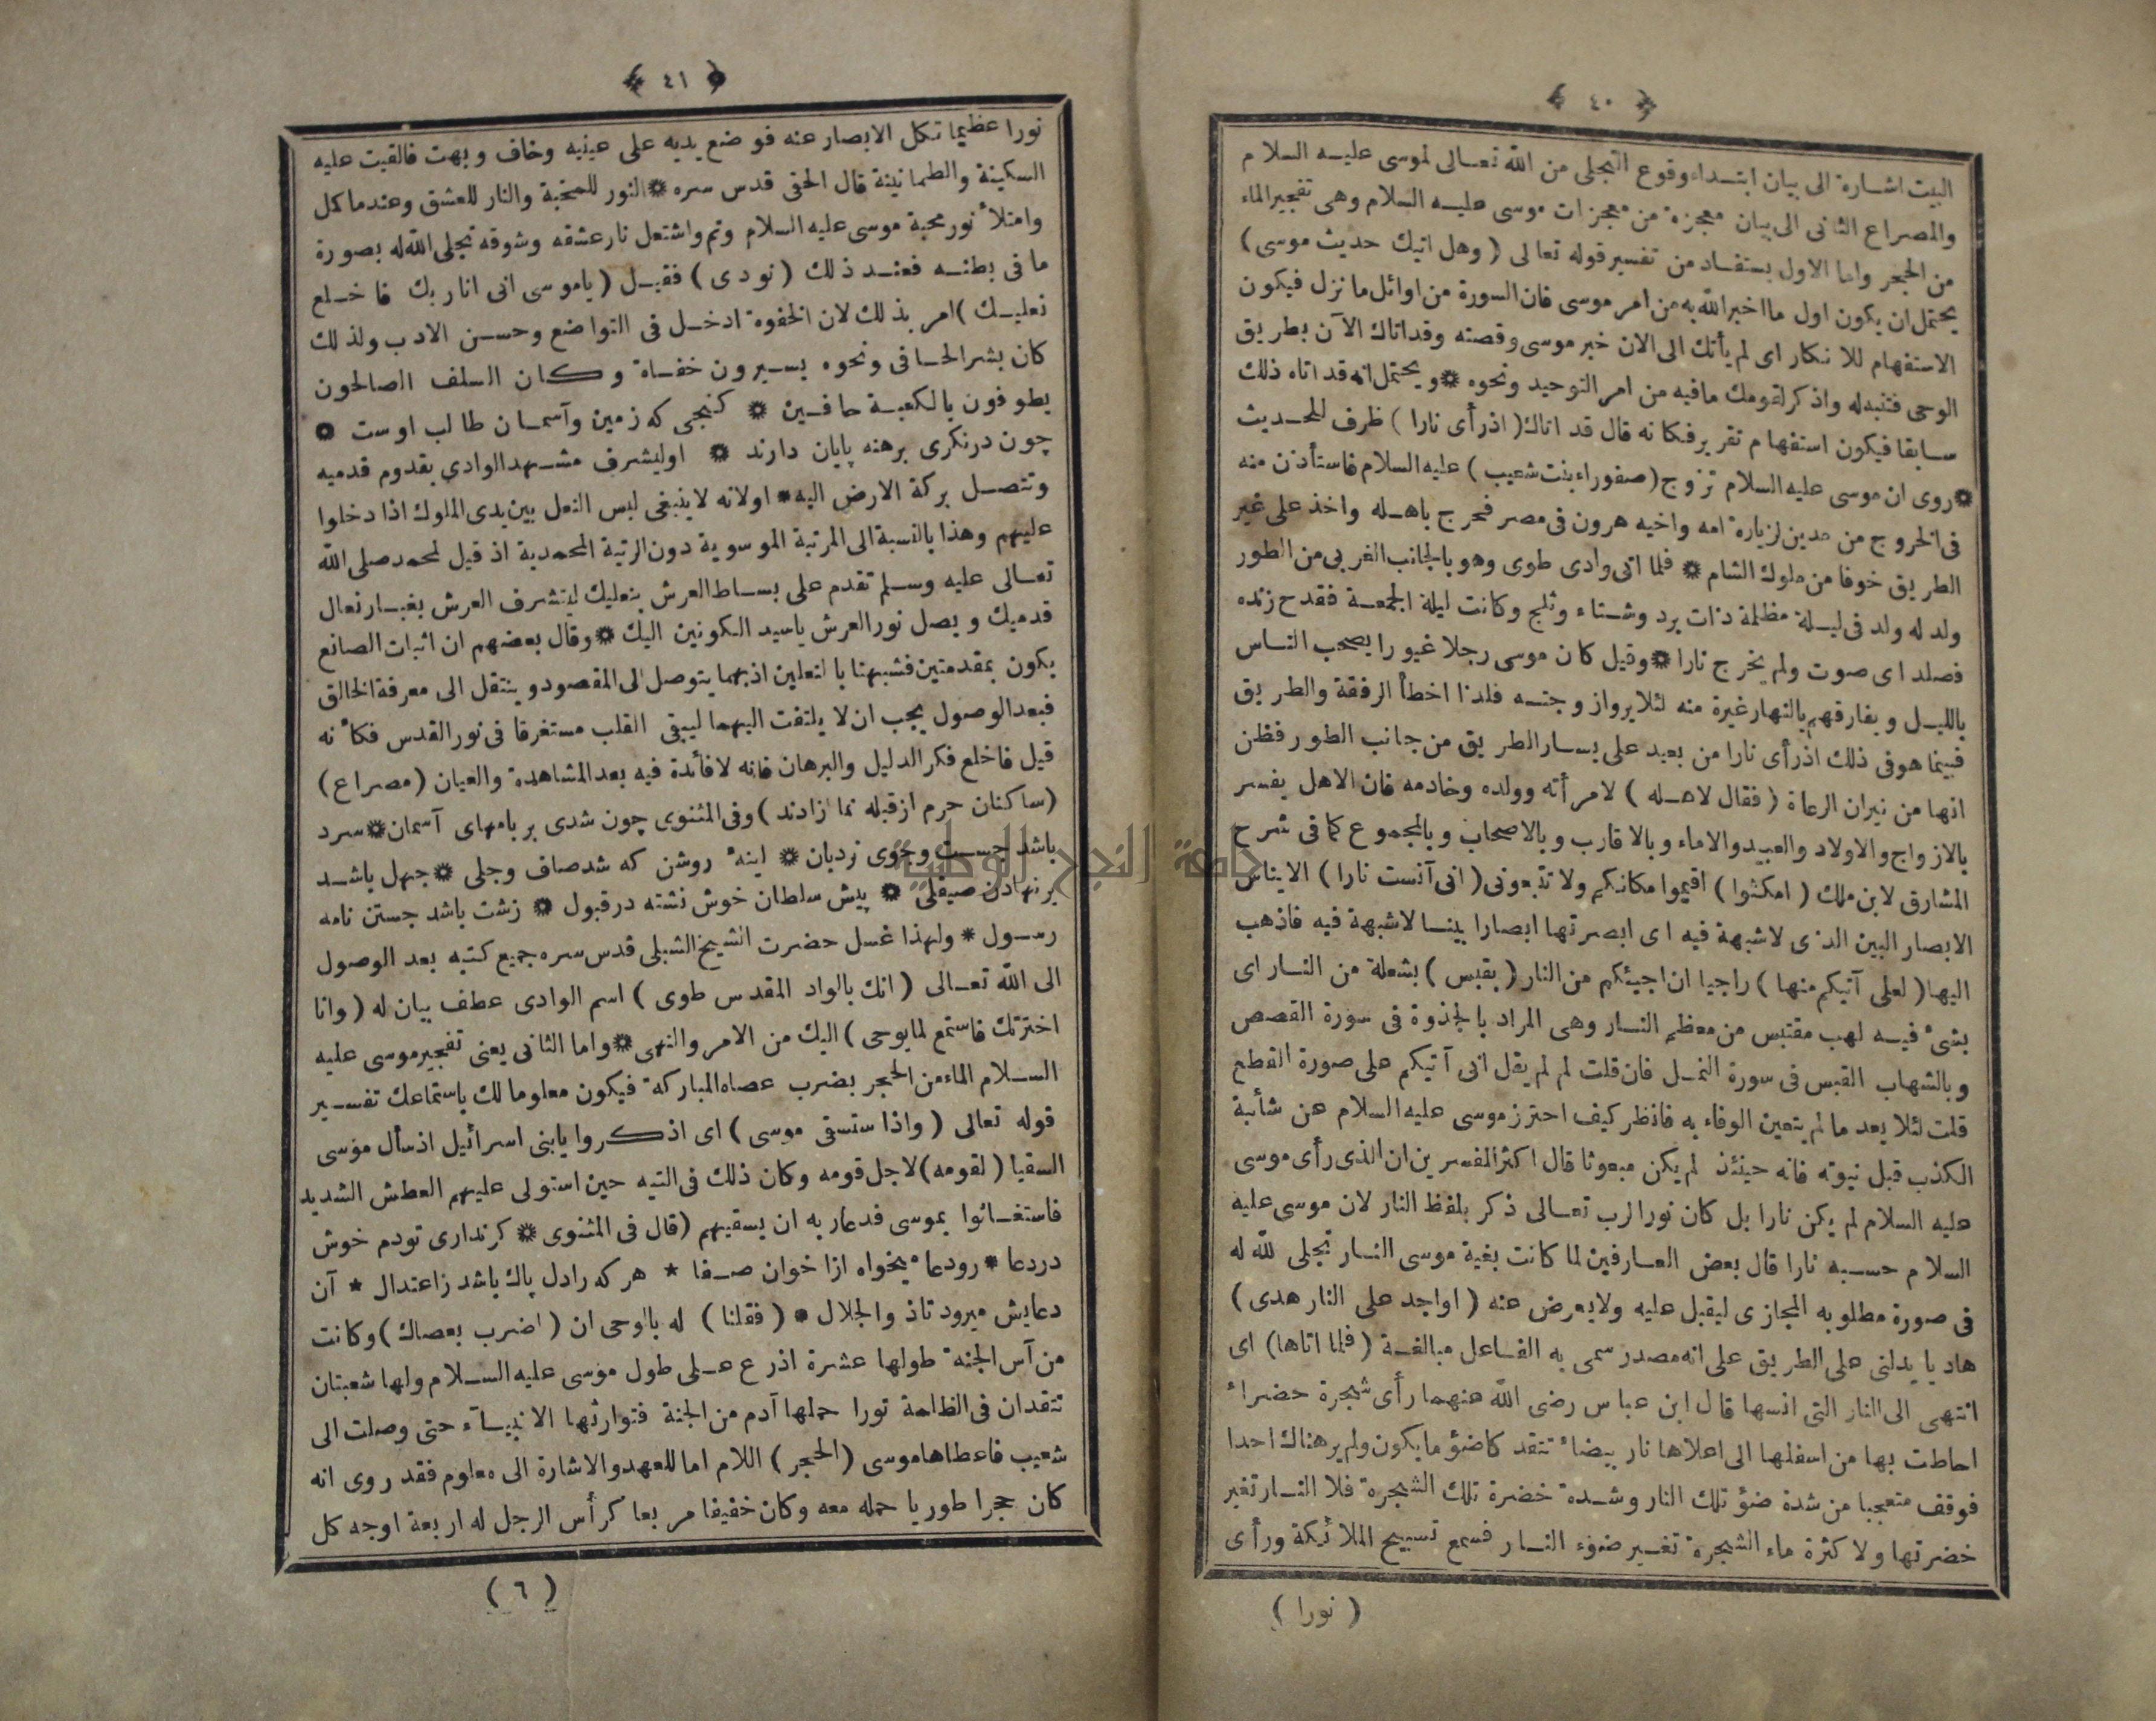 ﴿ ٤٠ ﴾
البيت اشارة الى بيان ابتداء وقوع التجلى من الله تعالى لموسى عليه السلام
والمصراع الثانى الى بيان معجزة من معجزات موسى عليه السلام وهى تفجير الماء
من الحجر واما الاول يستفاد من تفسير قوله تعالى (وهل اتيك حديث موسى)
يحتمل ان يكون اول ما اخبر الله به من امر موسى فان السورة من اوائل ما نزل فيكون
الاستفهام للانكار اى لم يأتك الى الان خبر موسى وقصته وقد اتاك الآن بطريق
الوحى فتنبه له واذكر لقومك ما فيه من امر التوحيد ونحوه * ويحتمل انه قد اتاه ذلك
سابقا فيكون استفهام تقرير فكانه قال قد اتاك (اذ رأى نارا) ظرف للحديث
* روى ان موسى عليه السلام تزوج (صفوراء بنت شعيب) عليه السلام فاستأذن منه
فى الخروج من مدين لزيارة امه واخيه هرون فى مصر فخرج باهله واخذ على غير
الطريق خوفا من ملوك الشام * فلما اتى وادى طوى وهو بالجانب الغربى من الطور
ولد له ولد فى ليلة مظلمة ذات برد وشتاء وثلج وكانت ليلة الجمعة فقدح زنده
فصلد اى صوت ولم يخرج نارا * وقيل كان موسى رجلا غيورا يصحب الناس
بالليل ويفارقهم بالنهار غيرة منه لئلا يرواز وجته فلذا اخطأ الرفقة والطريق
فبينما هو فى ذلك اذ رأى نارا من بعيد على يسار الطريق من جانب الطور فظن
انها من نيران الرعاة (فقال لاهله) لامرأته وولده وخادمه فان الاهل يفسر
بالازواج والاولاد والعبيد والاماء وبالاقارب وبالاصحاب وبالمجموع كما فى شرح
المشارق لابن ملك (امكثوا) اقيموا مكانكم ولا تتبعونى (انى آنست نارا) الايناس
الابصار البين الذى لا شبهة فيه اى ابصرتها ابصارا بينا لا شبهة فيه فاذهب
اليها (لعلى آتيكم منها) راجيا ان اجيئكم من النار (بقبس) بشعلة من النار اى
بشئ فيه لهب مقتبس من معظم النار وهى المراد بالجذوة فى سورة القصص
وبالشهاب القبس فى سورة النمل فان قلت لم لم يقل انى آتيكم على صورة القطع
قلت لئلا يعد ما لم يتعين الوفاء به فانظر كيف احترز موسى عليه السلام عن شائبة
الكذب قبل نبوته فانه حينئذ لم يكن مبعوثا قال اكثر المفسرين ان الذى رأى موسى
عليه السلام لم يكن نارا بل كان نور الرب تعالى ذكر بلفظ النار لان موسى عليه
السلام حسبه نارا قال بعض العارفين لما كانت بغية موسى النار تجلى لله له
فى صورة مطلوبه المجازى ليقبل عليه ولا يعرض عنه (او اجد على النار هدى)
هاديا يدلنى على الطريق على انه مصدر سمى به الفاعل مبالغة (فلما اتاها) اى
انتهى الى النار التى انسها قال ابن عباس رضى الله عنهما رأى شجرة خضراء
احاطت بها من اسفلها الى اعلاها نار بيضاء تتقد كاضوؤ ما يكون ولم ير هناك احدا
فوقف متعجبا من شدة ضؤ تلك النار وشدة خضرة تلك الشجرة فلا النار تغير
خضرتها ولا كثرة ماء الشجرة تغير ضوء النار فسمع تسبيح الملائكة ورأى
(نورا)
﴿ ٤١ ﴾
نورا عظيما تكل الابصار عنه فوضع يديه على عينيه وخاف وبهت فالقيت عليه
السكينة والطمانينة قال الحقى قدس سره * النور للمحبة والنار للعشق وعندما كمل
وامتلأ نور محبة موسى عليه السلام وتم واشتعل نار عشقه وشوقه تجلى الله له بصورة
ما فى بطنه فعند ذلك (نودى) فقيل (ياموسى انى انا ربك فاخلع
نعليك) امر بذلك لان الحفوة ادخل فى التواضع وحسن الادب ولذلك
كان بشر الحافى ونحوه يسيرون حفاة وكان السلف الصالحون
يطوفون بالكعبة حافين * كنجى كه زمين وآسمان طالب اوست *
چون درنكرى برهنه پايان دارند * او ليشرف مشهد الوادي بقدوم قدميه
وتتصل بركة الارض اليه * او لانه لا ينبغى لبس النعل بين يدى الملوك اذا دخلوا
عليهم وهذا بالنسبة الى المرتبة الموسوية دون الرتبة المحمدية اذ قيل لمحمد صلى الله
تعالى عليه وسلم تقدم على بساط العرش بنعليك ليتشرف العرش بغبار نعال
قدميك ويصل نور العرش ياسيد الكونين اليك * وقال بعضهم ان اثبات الصانع
يكون بمقدمتين فشبهتا بالنعلين اذ بهما يتوصل الى المقصود وينتقل الى معرفة الخالق
فبعد الوصول يجب ان لا يلتفت اليهما ليبقى القلب مستغرقا فى نور القدس فكأنه
قيل فاخلع فكر الدليل والبرهان فانه لا فائدة فيه بعد المشاهدة والعيان (مصراع)
(ساكنان حرم از قبله نما ازادند) وفى المثنوى چون شدى بر بامهاى آسمان * سرد
باشد جست وجوى نردبان * اينه روشن كه شد صاف وجلى * جهل باشد
بر نهادن صيقلى * پيش سلطان خوش نشته در قبول * زشت باشد جستن نامه
رسول * ولهذا غسل حضرت الشيخ الشبلى قدس سره جميع كتبه بعد الوصول
الى الله تعالى (انك بالواد المقدس طوى) اسم الوادى عطف بيان له (وانا
اخترتك فاستمع لما يوحى) اليك من الامر والنهى * واما الثانى يعنى تفجير موسى عليه
السلام الماء من الحجر بضرب عصاه المباركة فيكون معلوما لك باستماعك تفسير
قوله تعالى (واذا ستسقى موسى) اى اذكروا يابنى اسرائيل اذ سأل موسى
السقيا (لقومه) لاجل قومه وكان ذلك فى التيه حين استولى عليهم العطش الشديد
فاستغاثوا بموسى فدعا ربه ان يسقيهم (قال فى المثنوى * كر ندارى تو دم خوش
در دعا * رو دعا ميخواه از اخوان صفا * هر كه را دل پاك باشد ز اعتدال * آن
دعايش ميرود تاذ والجلال * (فقلنا) له بالوحى ان (اضرب بعصاك) وكانت
من آس الجنة طولها عشرة اذرع على طول موسى عليه السلام ولها شعبتان
تتقدان فى الظلمة نورا حملها آدم من الجنة فتوارثها الانبياء حتى وصلت الى
شعيب فاعطاها موسى (الحجر) اللام اما للعهد والاشارة الى معلوم فقد روى انه
كان حجرا طوريا حمله معه وكان خفيفا مربعا كرأس الرجل له اربعة اوجه كل
(٦)
جامعة النجاح الوطنية